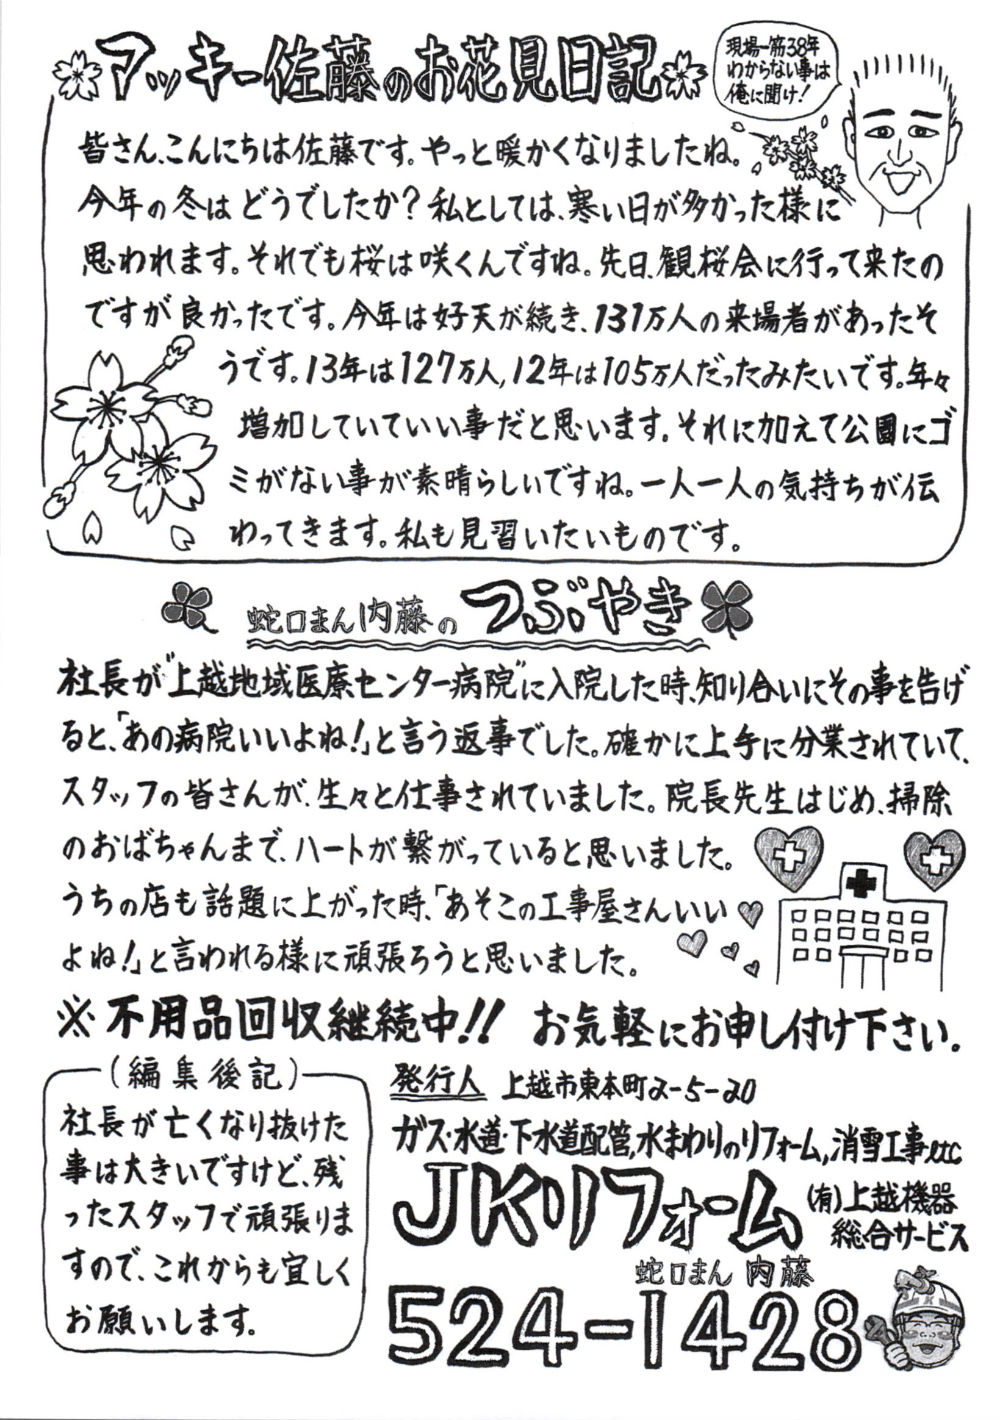 アッキー佐藤のお花見日記
現場一筋38年
わからない事は
俺に聞け!
皆さん、こんにちは佐藤です。やっと暖かくなりましたね。
今年の冬はどうでしたか?私としては、寒い日が多かった様に
思われます。それでも桜は咲くんですね。先日、観桜会に行って来たの
ですが良かったです。今年は好天が続き、131万人の来場者があったそ
うです。13年は127万人、12年は105万人だったみたいです。年々
増加していていい事だと思います。それに加えて公園にゴ
ミがない事が素晴らしいですね。一人一人の気持ちが伝
わってきます。私も見習いたいものです。
蛇口まん内藤のつぶやき
社長が"上越地域医療センター病院"に入院した時、知り合いにその事を告げ
ると、「あの病院いいよね!」と言う返事でした。確かに上手に分業されていて、
スタッフの皆さんが、生々と仕事されていました。院長先生はじめ、掃除
のおばちゃんまで、ハートが繋がっていると思いました。
うちの店も話題に上がった時、「あそこの工事屋さんいい
よね!」と言われる様に頑張ろうと思いました。
※不用品回収継続中!! お気軽にお申し付け下さい。
(編集後記)
社長が亡くなり抜けた
事は大きいですけど、残
ったスタッフで頑張りま
すので、これからも宜しく
お願いします。
発行人 上越市東本町2-5-20
ガス・水道・下水道配管,水まわりのリフォーム,消雪工事etc
JKリフォーム
(有)上越機器
総合サービス
蛇口まん 内藤
524-1428
JK